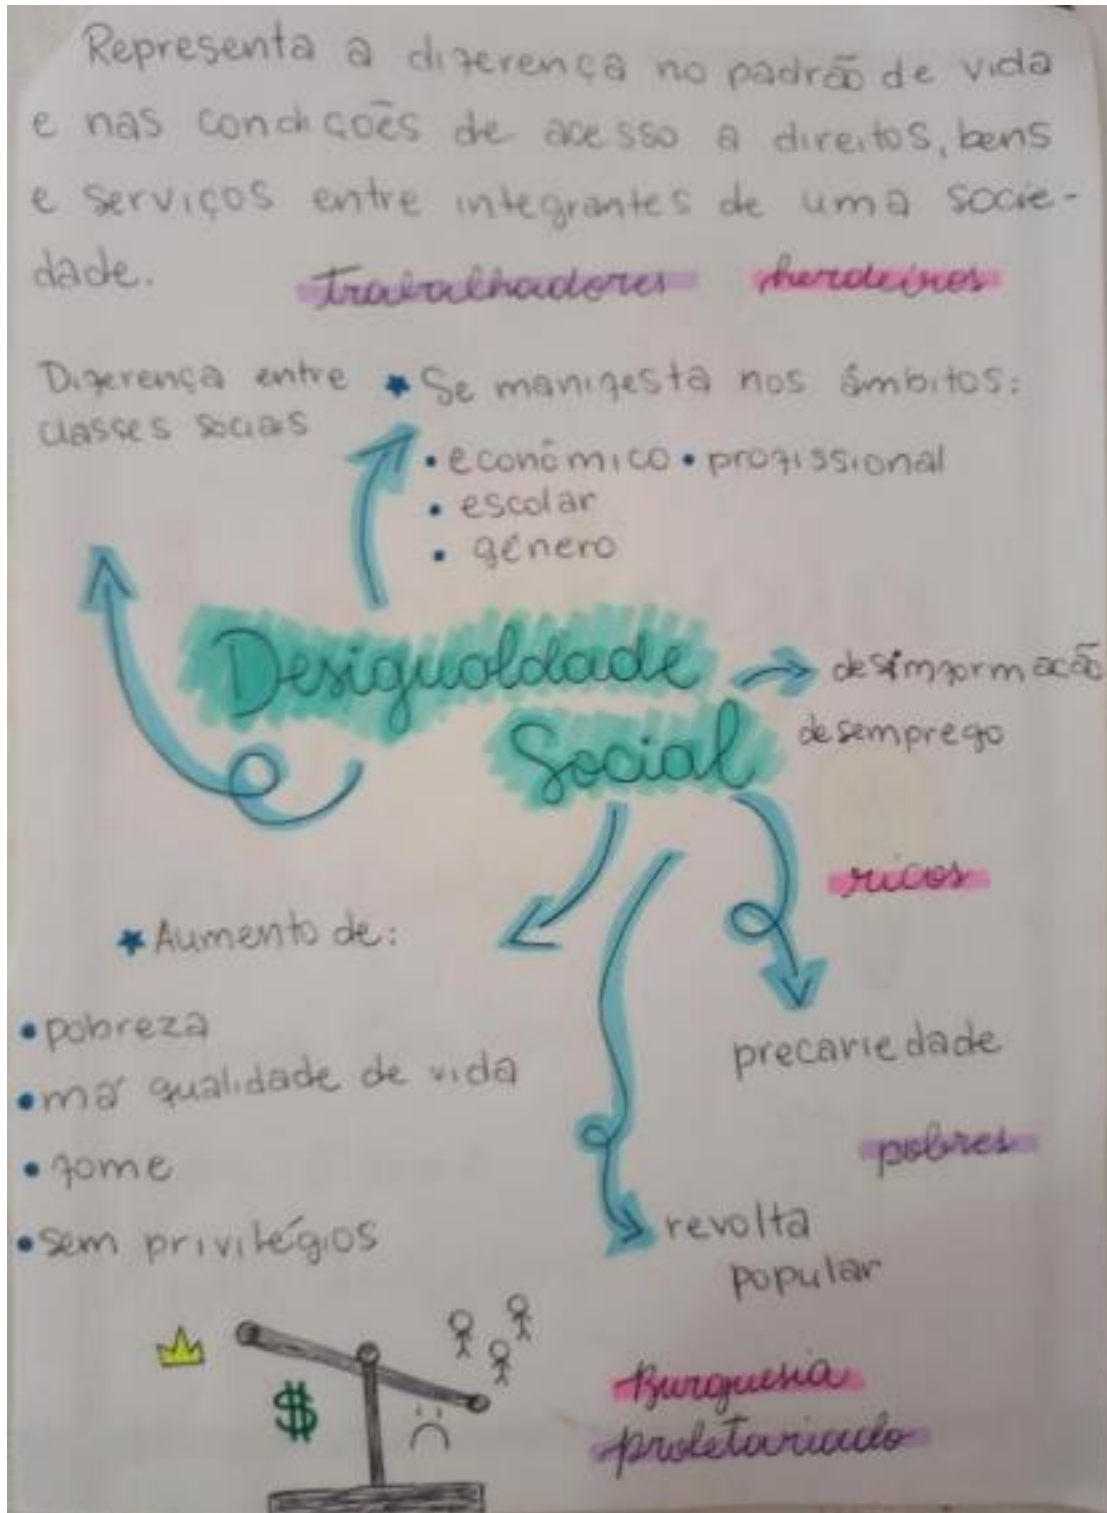 Representa a diferença no padrão de vida
e nas condições de acesso a direitos, bens
e serviços entre integrantes de uma socie-
dade.
trabalhadores herdeiros
Diferença entre
classes sociais
★ Se manifesta nos âmbitos:
• econômico • profissional
• escolar
• gênero
Desigualdade
Social
desinformação
desemprego
ricos
★ Aumento de:
• pobreza
• má qualidade de vida
• fome
• sem privilégios
precariedade
pobres
revolta
popular
$
Burguesia
proletariado